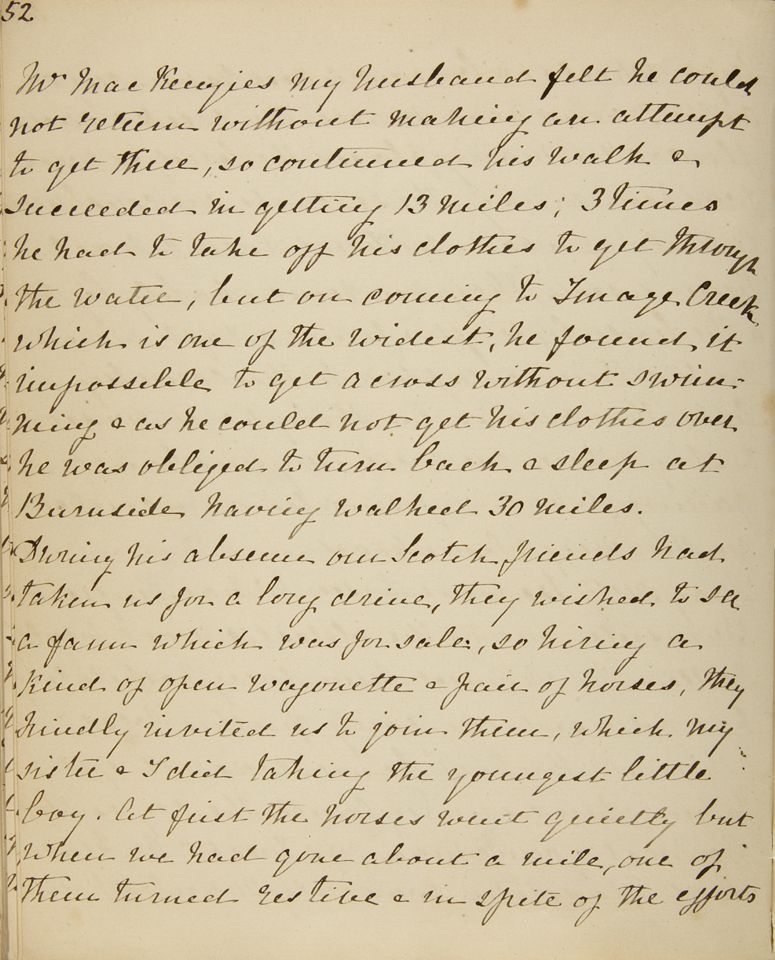 52
Mr MacKenzies my husband felt he could
not return without making an attempt
to get there, so continued his walk &
succeeded in getting 13 miles; 3 times
he had to take off his clothes to get through
the water, but on coming to Image Creek
which is one of the widest, he found it
impossible to get across without swim-
ming & as he could not get his clothes over
he was obliged to turn back & sleep at
Burnside having walked 30 miles.
During his absence our Scotch friends had
taken us for a long drive, they wished to see
a farm which was for sale, so hiring a
kind of open wagonette & pair of horses, they
kindly invited us to join them, which my
sister & I did taking the youngest little
boy. At first the horses went quietly but
when we had gone about a mile, one of
them turned restive & in spite of the efforts